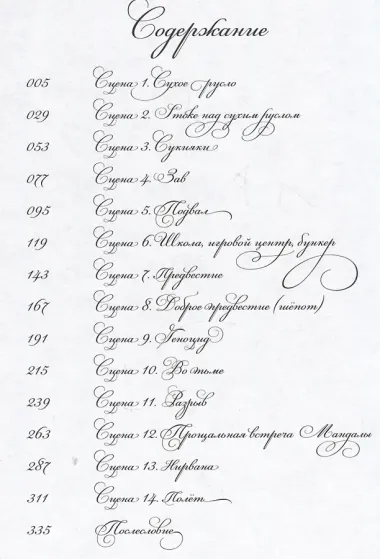 Содержание
005 Сцена 1. Сухое русло
029 Сцена 2. Этюке над сухим руслом
053 Сцена 3. Сукияки
077 Сцена 4. Зав
095 Сцена 5. Подвал
119 Сцена 6. Школа, игровой центр, бункер
143 Сцена 7. Предвестие
167 Сцена 8. Доброе предвестие (шёпот)
191 Сцена 9. Геноцид
215 Сцена 10. Во тьме
239 Сцена 11. Разрыв
263 Сцена 12. Прощальная встреча Мандалы
287 Сцена 13. Нирвана
311 Сцена 14. Полёт
335 Послесловие